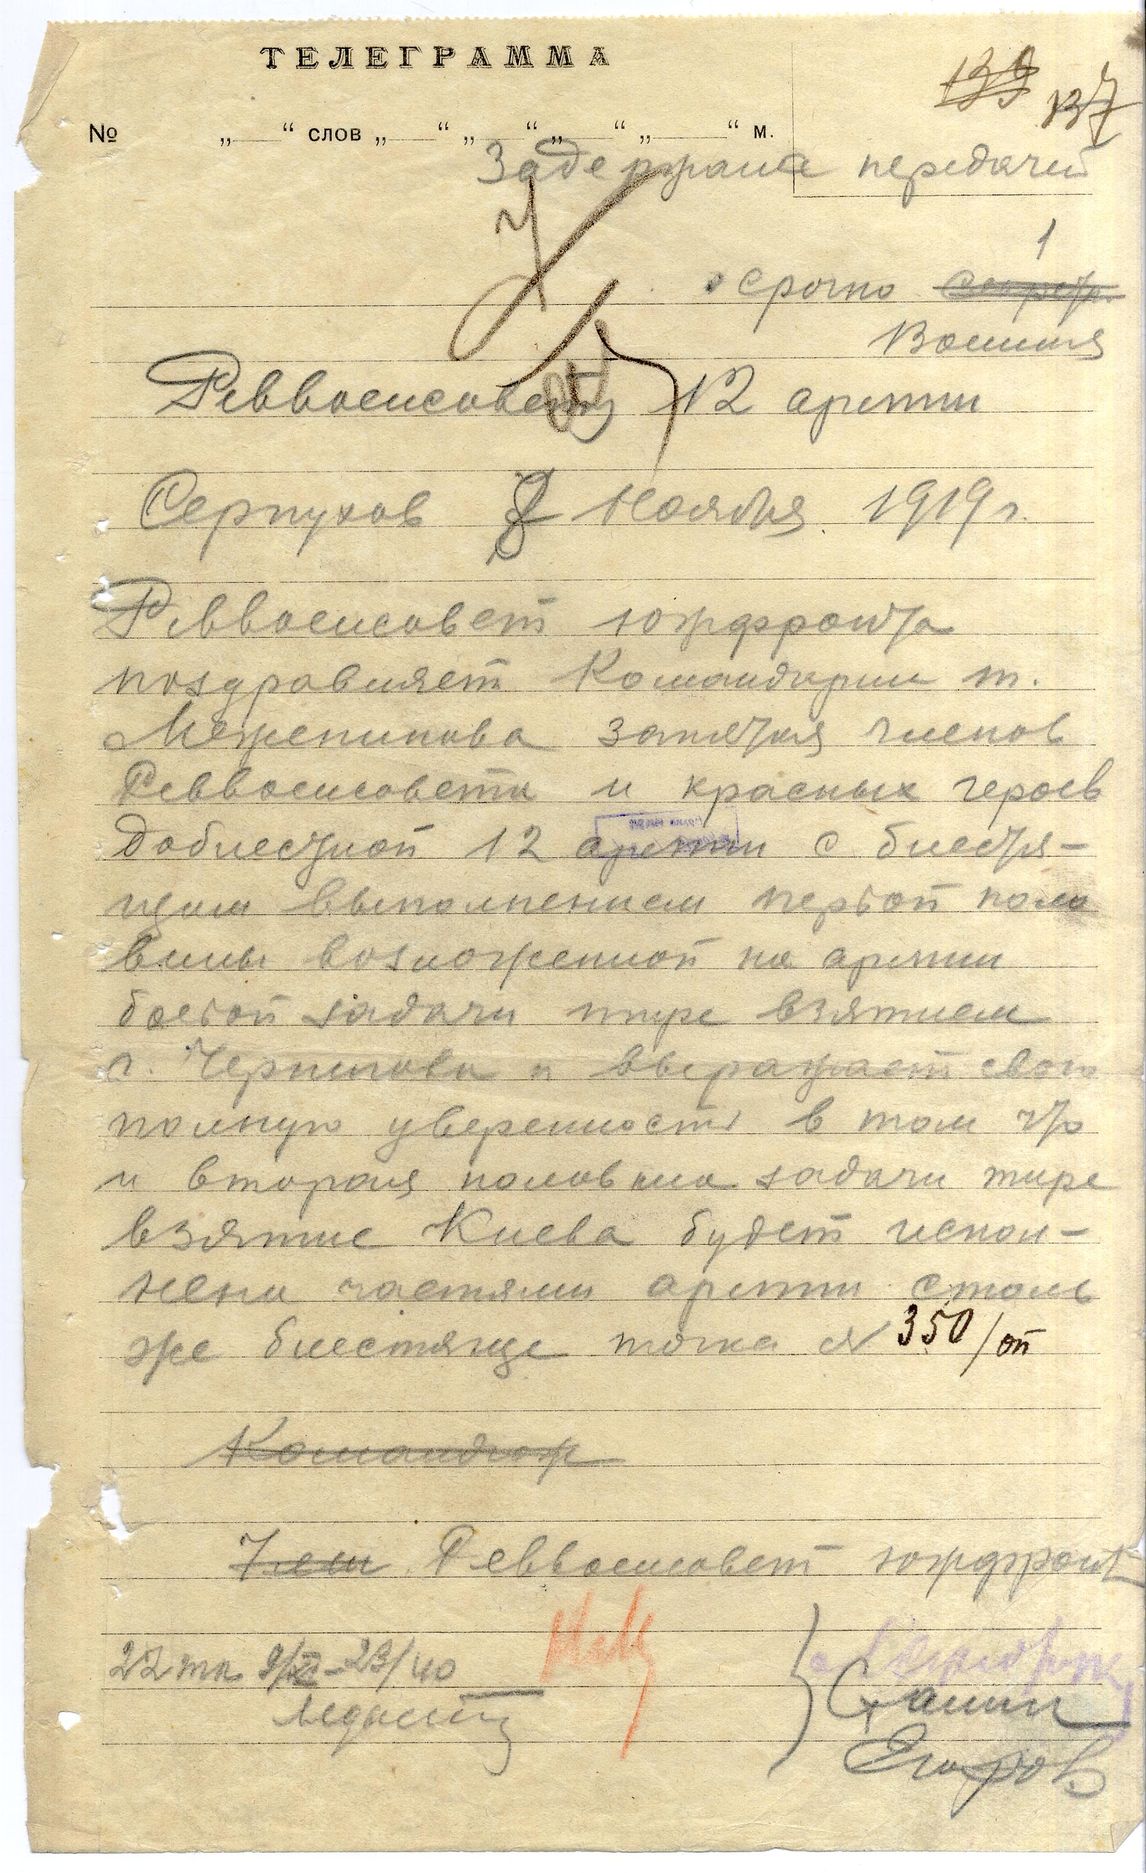 ТЕЛЕГРАММА
139 137
№ „ “ слов „ “ „ “ „ “ „ “ м.
Задержана передачей
1
срочно секретн.
Военная
Реввоенсовету 12 армии
Серпухов 8 ноября 1919 г.
Реввоенсовет южфронта
поздравляет Командарм т.
Меженинова замечая членов
Реввоенсовета и красных героев
доблестной 12 армии с блестя-
щим выполнением первой поло
вины возложенной на армии
боевой задачи тире взятием
г. Чернигова и выражает свою
полную уверенность в том что
и вторая половина задачи тире
взятие Киева будет испол-
нена частями армии столь
же блестяще точка № 350/оп
Командюж
Член Реввоенсовет южфронта
22 тк 9/XI - 23/40
Сталин
Егоров